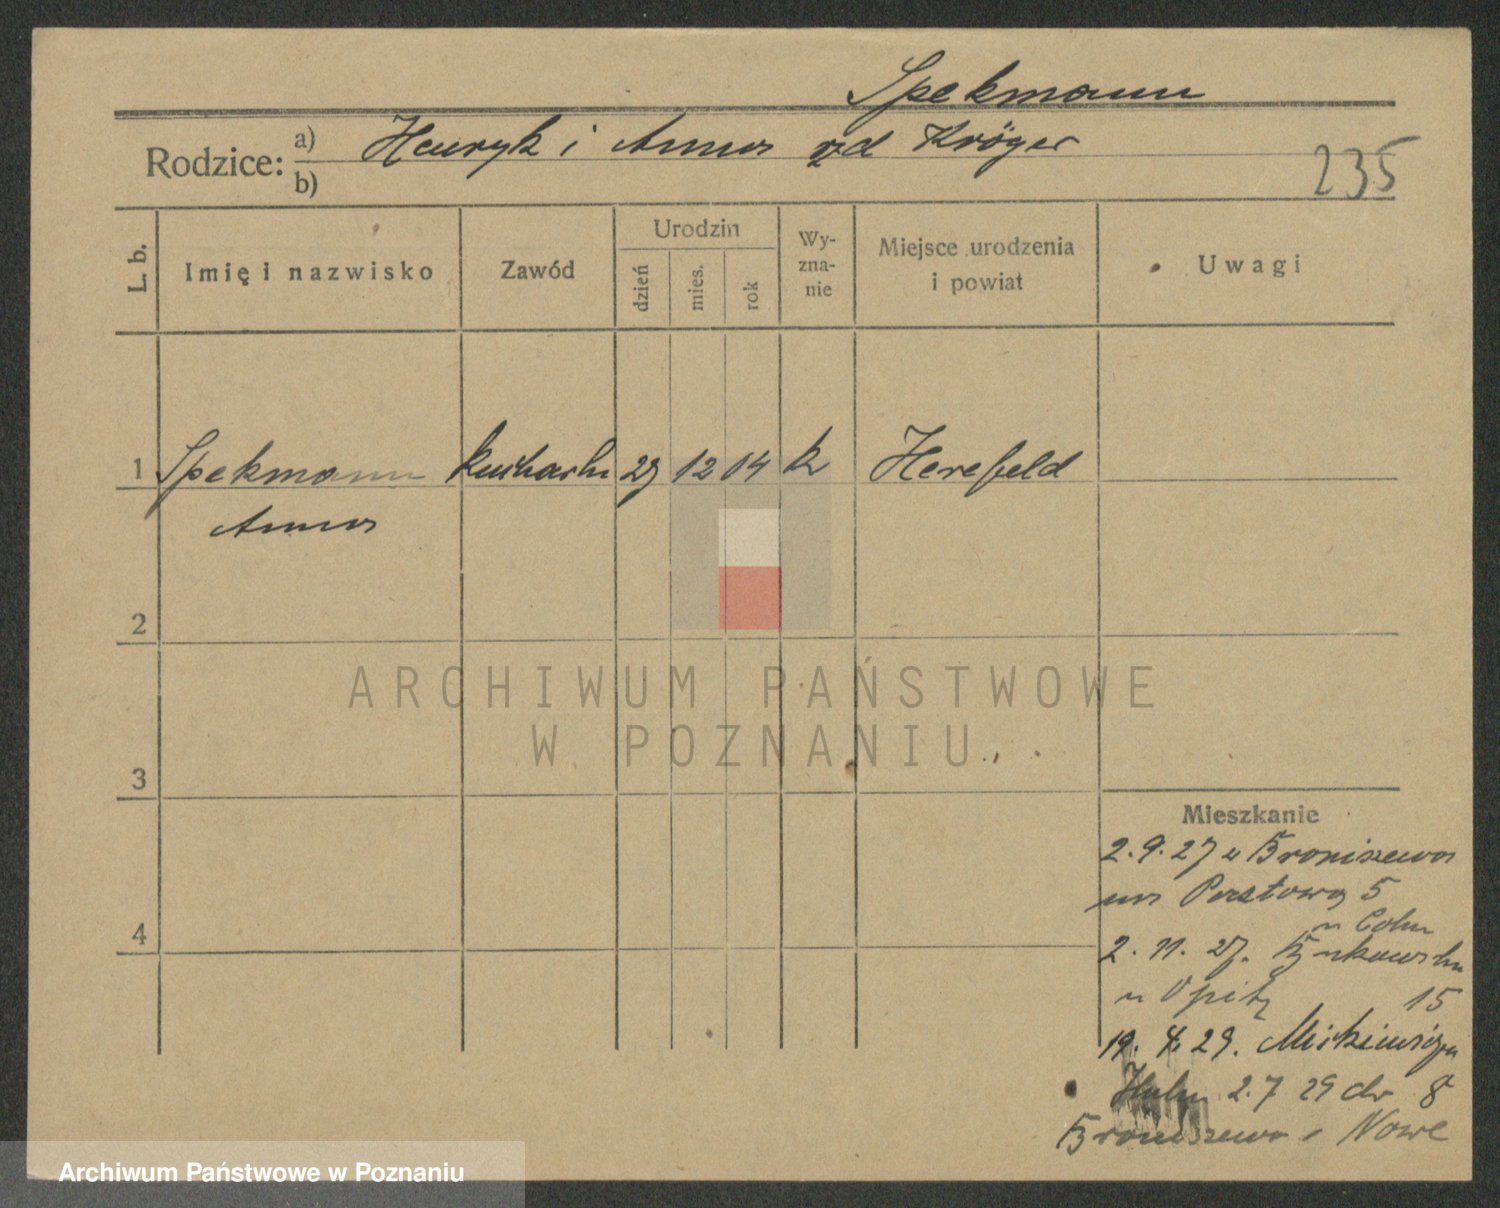 Spekmann
Rodzice: a) Henryk i Anna rzd Kröger
b)
235
L. b.
Imię i nazwisko
Zawód
Urodzin
dzień
mies.
rok
Wy-
zna-
nie
Miejsce urodzenia
i powiat
Uwagi
1 Spekmann kucharka 29 12 04 k Herefeld
Anna
2
ARCHIWUM PAŃSTWOWE
W POZNANIU
3
Mieszkanie
2.9.27 u Broniszewa
5
4
2. 11. 27.
u Opitz 15
19. 4. 29.
2.7 29 do 8
Broniszewa Nowe
Archiwum Państwowe w Poznaniu